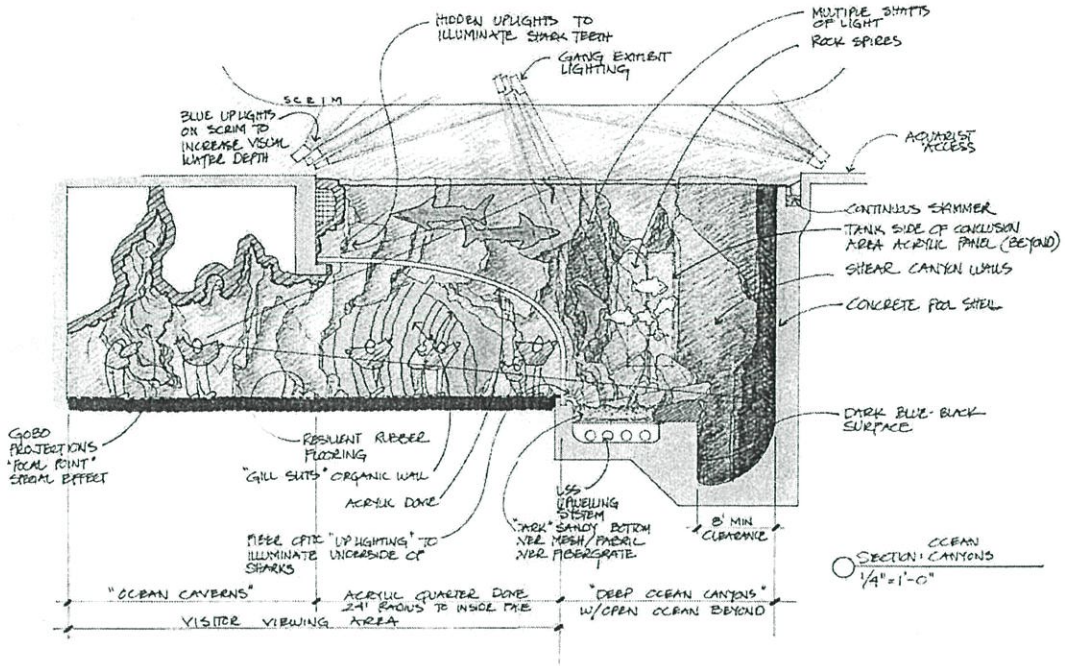 HIDDEN UPLIGHTS TO
ILLUMINATE SHARK TEETH
MULTIPLE SHAFTS
OF LIGHT
ROCK SPIRES
GANG EXHIBIT
LIGHTING
SCRIM
BLUE UPLIGHTS
ON SCRIM TO
INCREASE VISUAL
WATER DEPTH
AQUARIST
ACCESS
CONTINUOUS SKIMMER
TANK SIDE OF CONCLUSION
AREA ACRYLIC PANEL (BEYOND)
SHEAR CANYON WALLS
CONCRETE POOL SHELL
DARK BLUE-BLACK
SURFACE
GOBO
PROJECTIONS
"FOCAL POINT"
SPECIAL EFFECT
RESILIENT RUBBER
FLOORING
"GILL SLITS" ORGANIC WALL
ACRYLIC DOME
FIBER OPTIC "UPLIGHTING" TO
ILLUMINATE UNDERSIDE OF
SHARKS
LSS
UPWELLING
SYSTEM
SANDY BOTTOM
OVER MESH/FABRIC
OVER FIBERGRATE
8' MIN
CLEARANCE
OCEAN
SECTION: CANYONS
1/4"=1'-0"
"OCEAN CAVERNS"
ACRYLIC QUARTER DOME
24' RADIUS TO INSIDE FACE
"DEEP OCEAN CANYONS"
W/OPEN OCEAN BEYOND
VISITOR VIEWING AREA